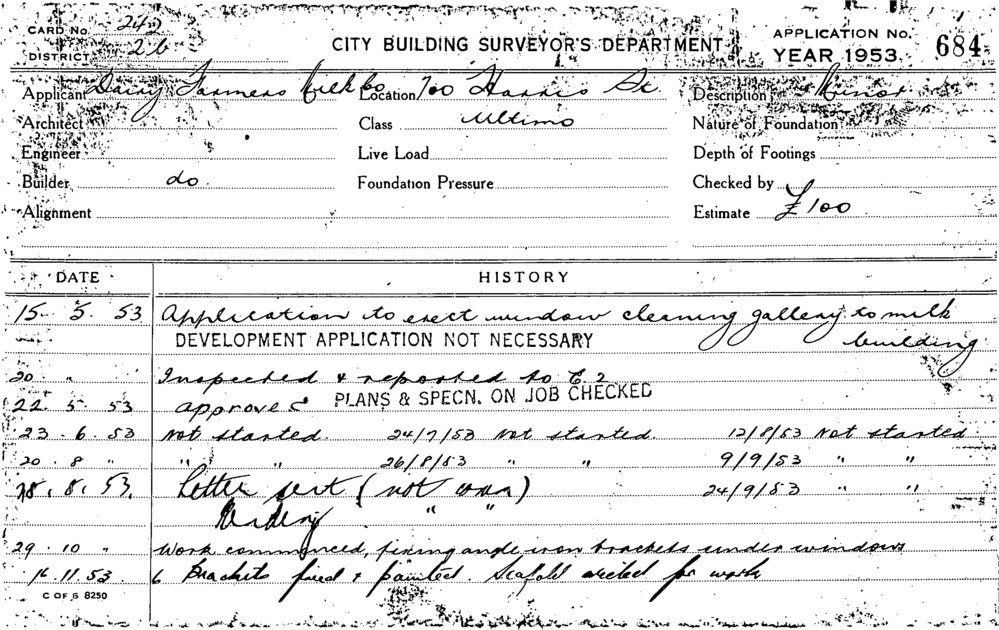 CARD No. 242
DISTRICT 26
CITY BUILDING SURVEYOR'S DEPARTMENT
APPLICATION No. 684
YEAR 1953
Applicant Dairy Farmers Milk Co Location 700 Harris St Description Minor
Architect Class Ultimo Nature of Foundation
Engineer Live Load Depth of Footings
Builder do. Foundation Pressure Checked by
Alignment Estimate £100
DATE HISTORY
15. 5. 53 Application to erect window cleaning gallery to milk building
DEVELOPMENT APPLICATION NOT NECESSARY
20 " Inspected & reported to C.2
22. 5. 53 approved PLANS & SPECN. ON JOB CHECKED
23. 6. 53 Not started. 24/7/53 Not started. 12/8/53 Not started
20. 8 " " " 26/8/53 " " 9/9/53 " "
28. 8. 53. Letter sent (not 24/9/53 " "
" "
29. 10 " Work commenced, fixing angle iron brackets under windows
16. 11. 53 6 Brackets fixed & painted. Scafold erected for work
C OF S 8250